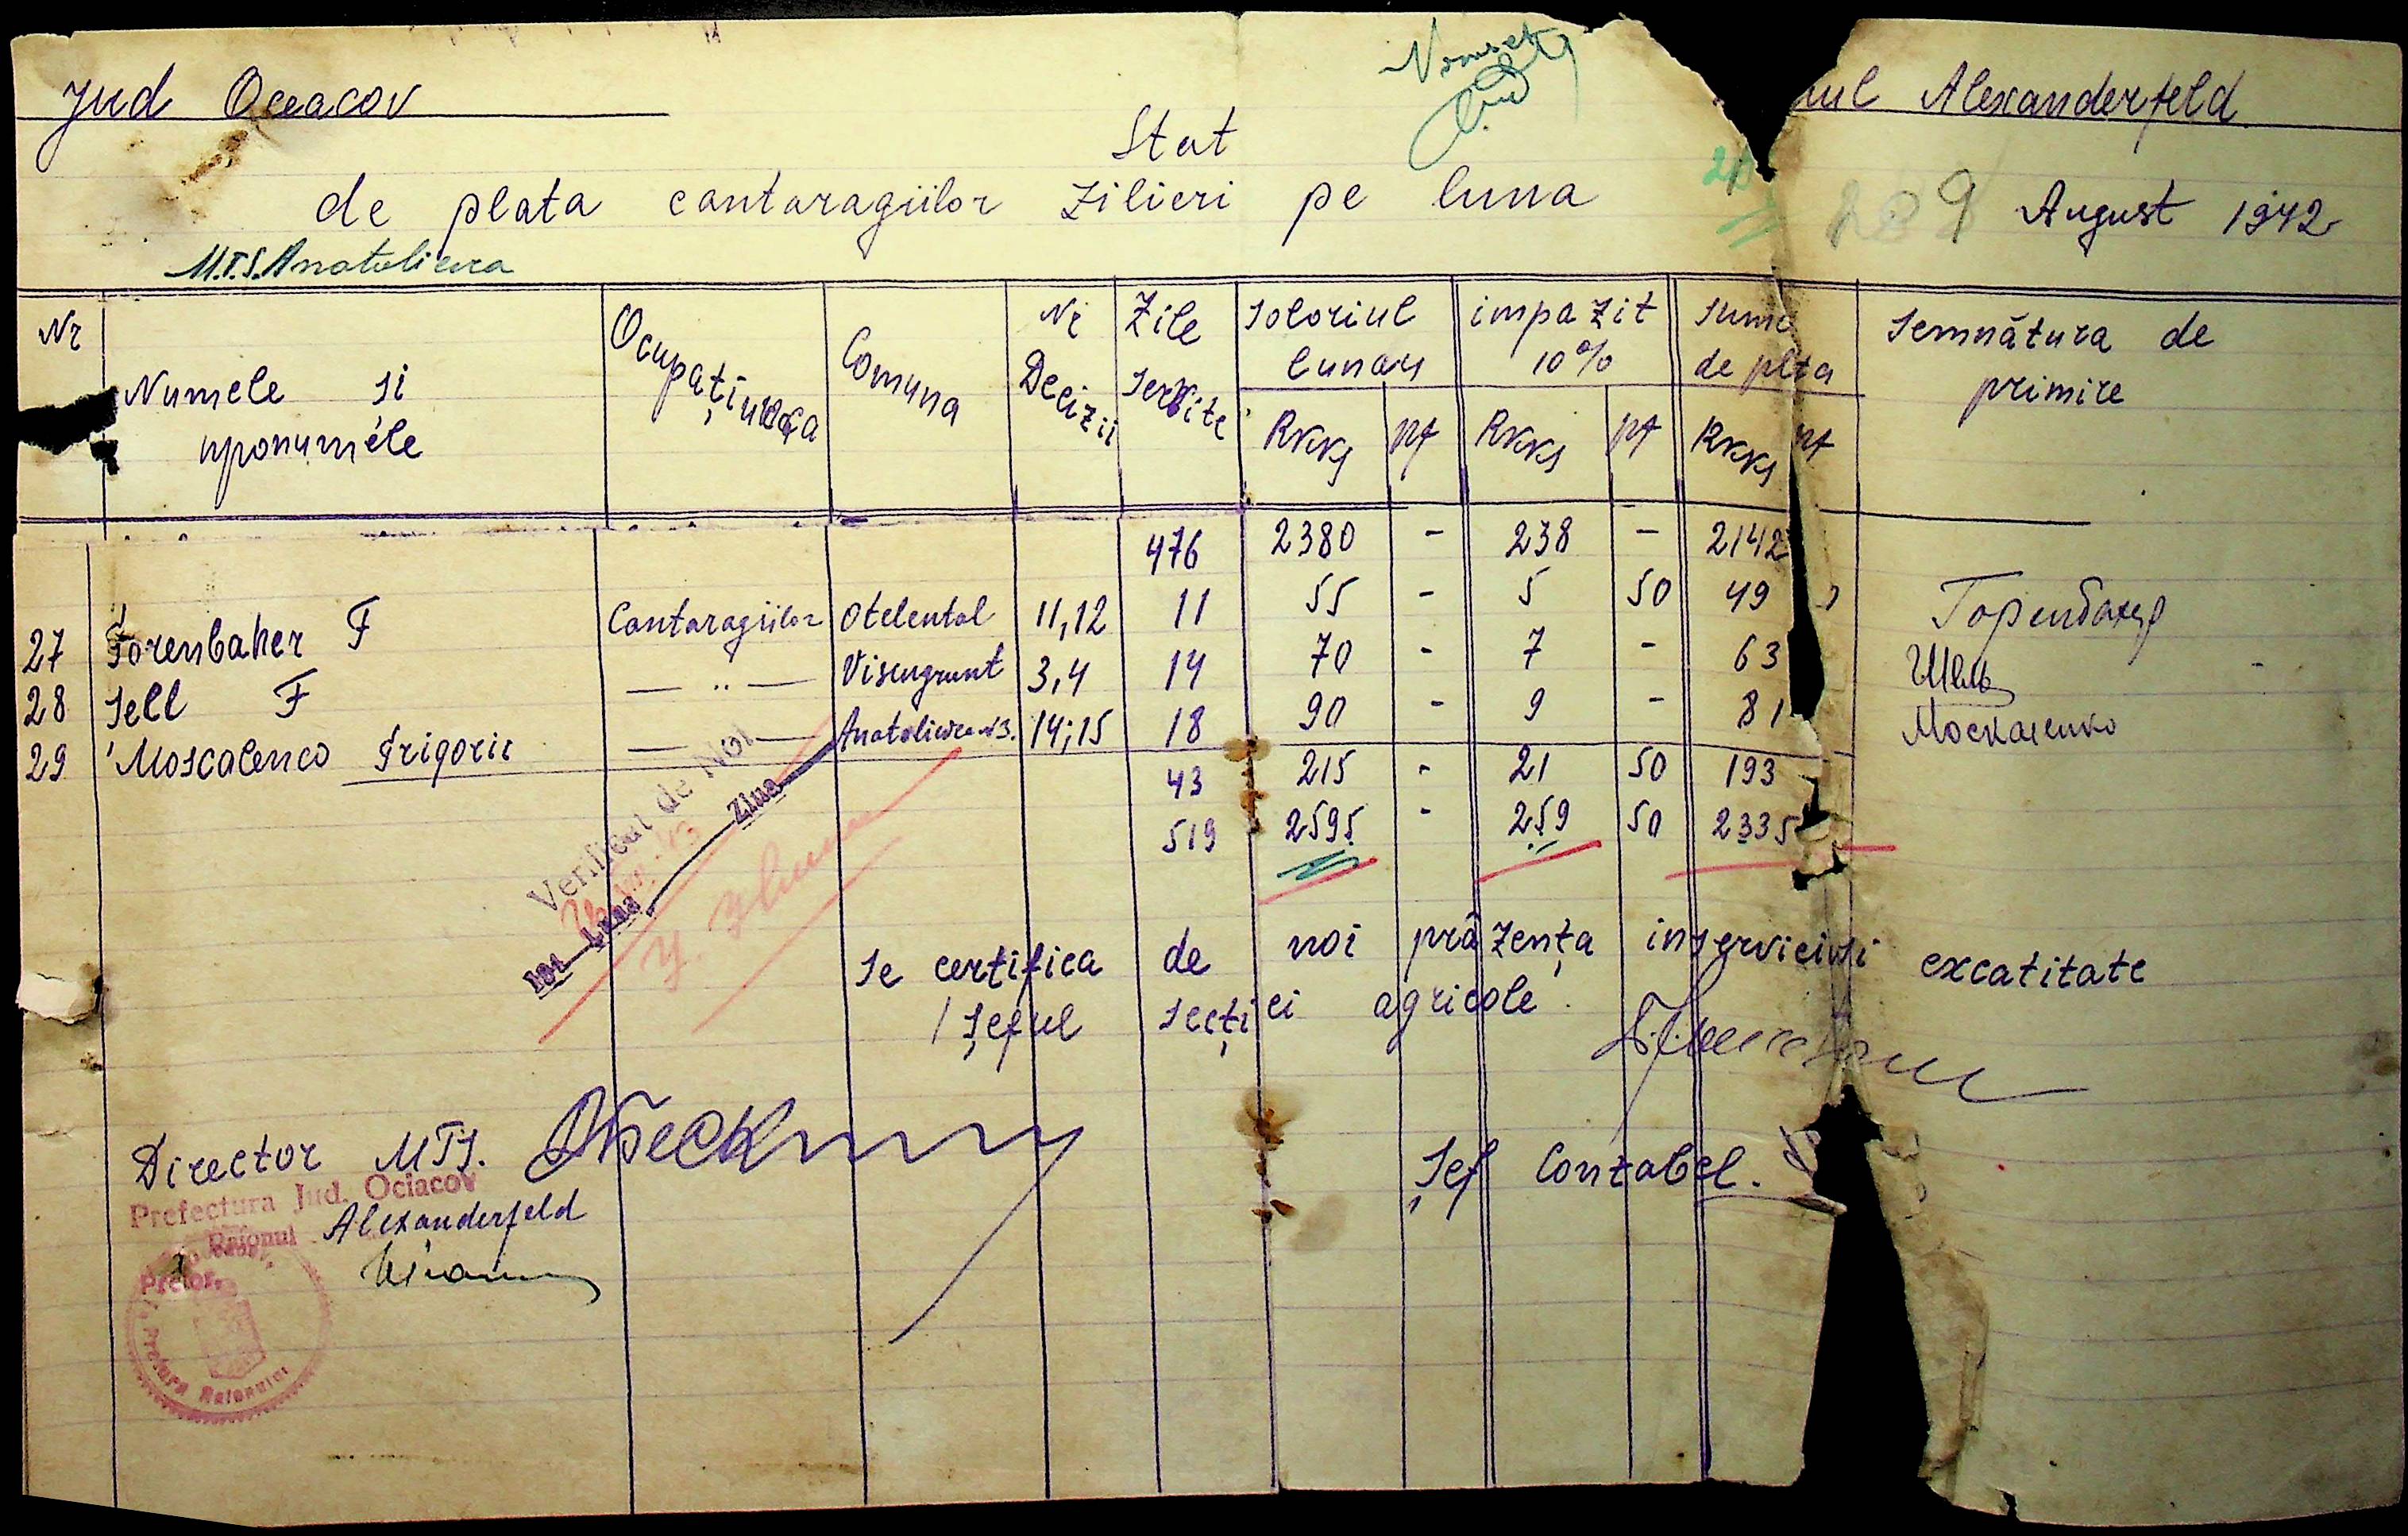 Jud Oceacov
Alexanderfeld
Stat
de plata cantaragiilor zilieri pe luna August 1942
209
M.T.S. Anatoliewca
Nr Numele si Ocupațiunea Comuna Nr Zile Soloriul impozit Suma Semnătura de
pronumele Decizii Servite lunar 10% de plta primire
Rkks pf Rkks pf Rkks pf
476 2380 - 238 - 2142
27 Forenbaher F Cantaragiilor Otelental 11,12 11 55 - 5 50 49 Горенбахер
28 Sell F — " — Visengrunt 3,4 14 70 - 7 - 63 Шель
29 Moscalenco Grigorie — — Anatoliewca N3. 14;15 18 90 - 9 - 81 Москаленко
43 215 - 21 50 193
519 2595 - 259 50 2335
Verificat de Noi
Luna Ziua
Se certifica de noi prâzența inserviciuși excatitate
Șeful secției agricole
Director MTS.
Șef Contabel.
Prefectura Jud. Ociacov
Raionul Alexanderfeld
Pretor,
Pretura Raionului